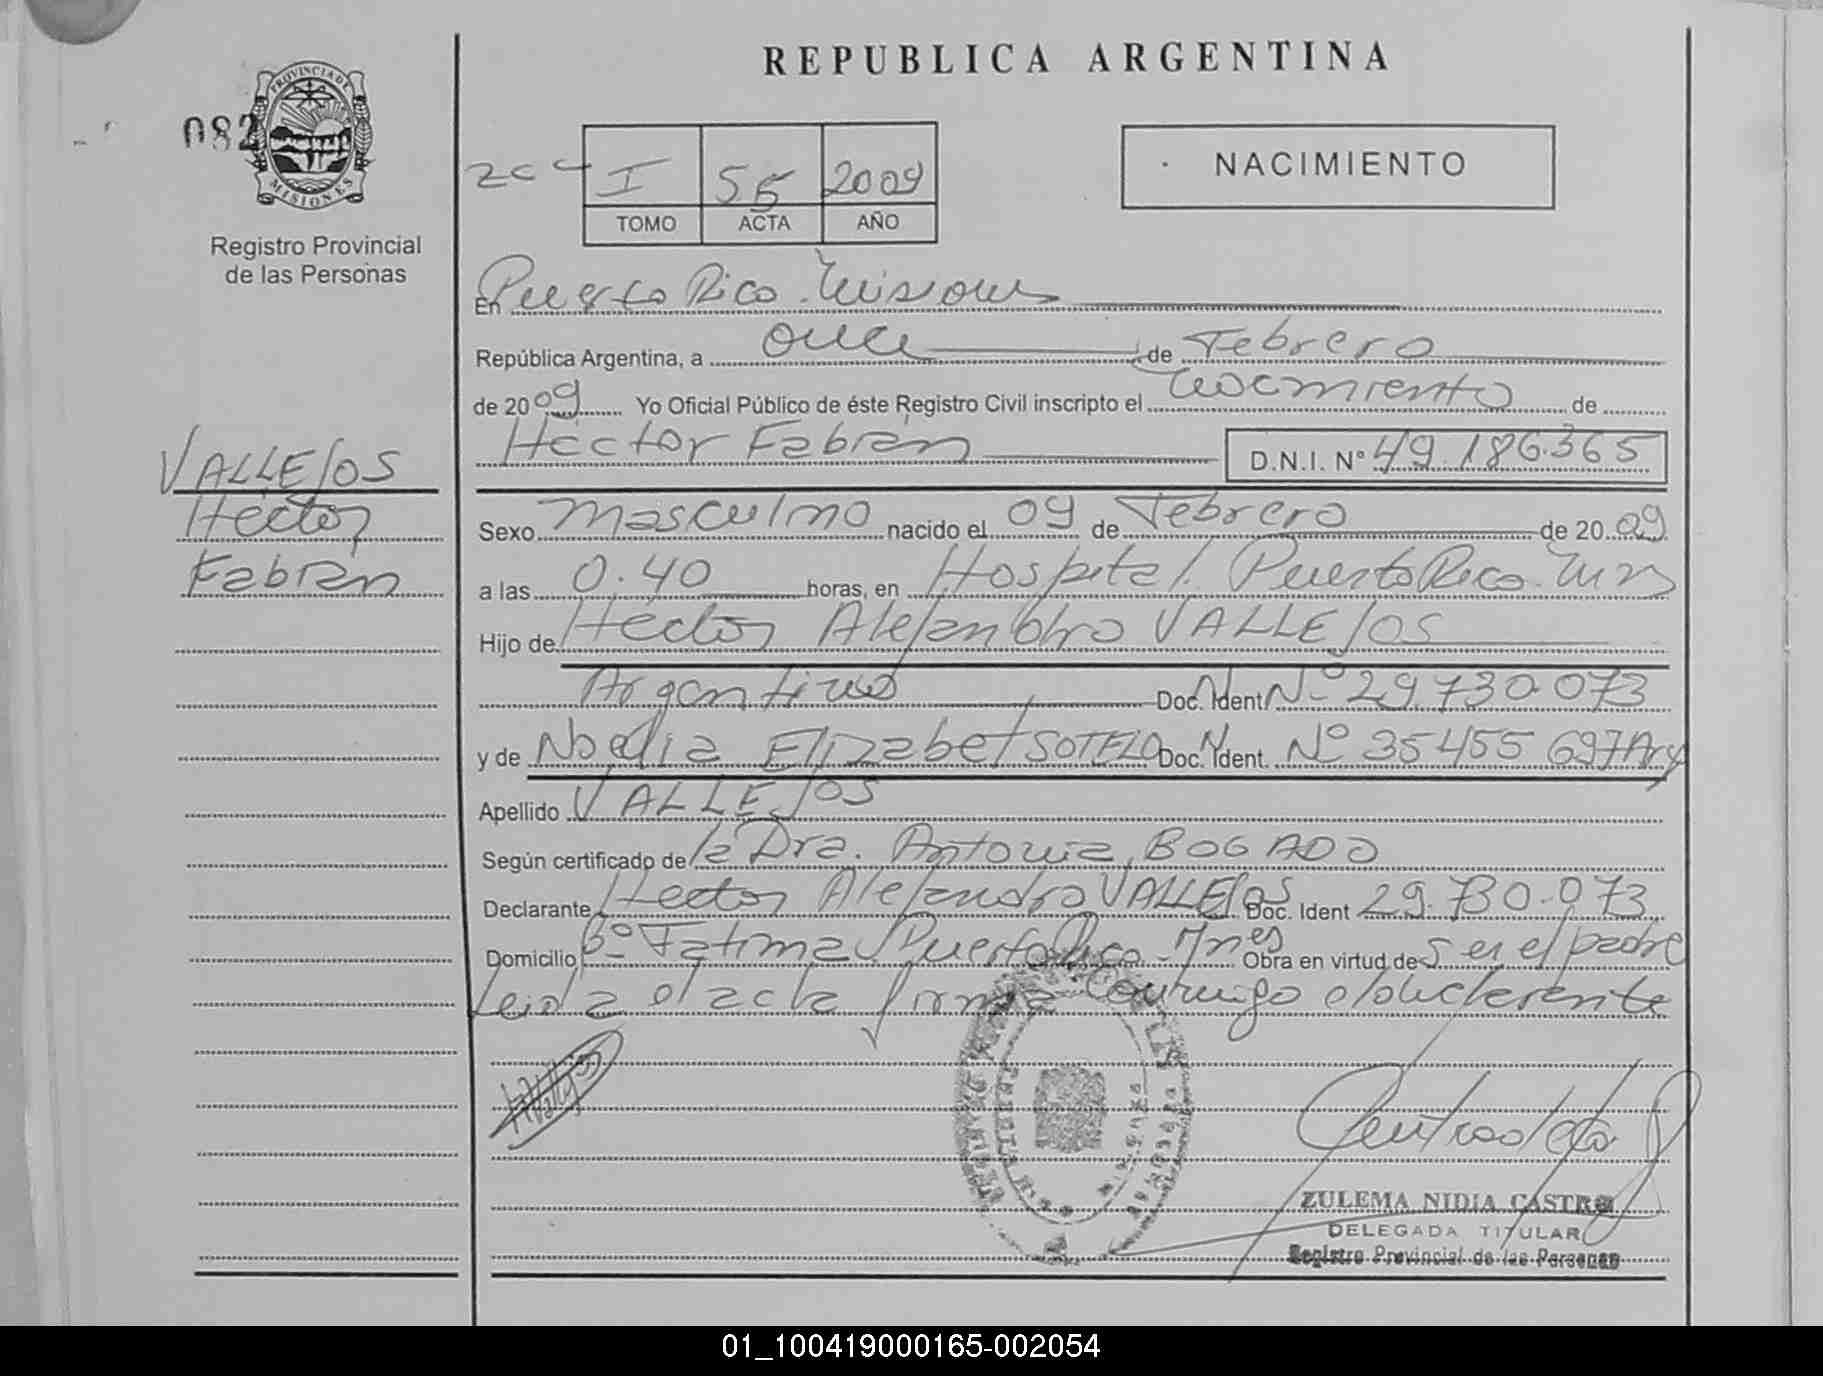 REPUBLICA ARGENTINA
PROVINCIA DE
MISIONES
082
Registro Provincial
de las Personas
I 55 2009
TOMO ACTA AÑO
NACIMIENTO
En Puerto Rico. Misiones
República Argentina, a once de Febrero
de 2009 Yo Oficial Público de éste Registro Civil inscripto el Nacimiento de
Héctor Fabián D.N.I. N° 49.186.365
VALLEJOS
Héctor
Fabián
Sexo masculino nacido el 09 de Febrero de 2009
a las 0.40 horas, en Hospital. Puerto Rico. Mns
Hijo de Héctor Alejandro VALLEJOS
Argentino Doc. Ident N° 29.730.073
y de Noelia Elizabet SOTELO Doc. Ident. N° 35455697 Arg
Apellido VALLEJOS
Según certificado de la Dra. Antonia BOGADO
Declarante Hector Alejandro VALLEJOS Doc. Ident 29.730.073
Domicilio B° Fatima Puerto Rico - Mnes Obra en virtud de ser el padre
Leida el acta firma conmigo el declarante
ZULEMA NIDIA CASTRO
DELEGADA TITULAR
Registro Provincial de las Personas
01_100419000165-002054